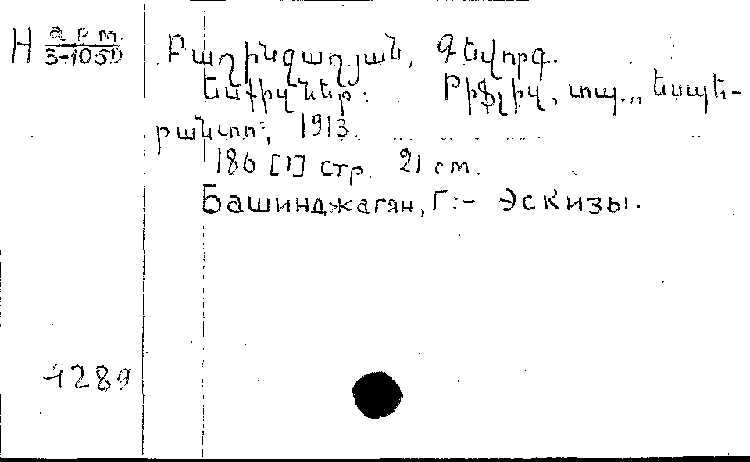 Н арт.
5-1050
Բաշինջաղյան, Գևորգ.
Էսքիզներ: Թիֆլիզ, տպ., Էսպե-
րանտո:, 1913.
186 [1] стр. 21 см.
Башинджагян, Г:- Эскизы.
4289